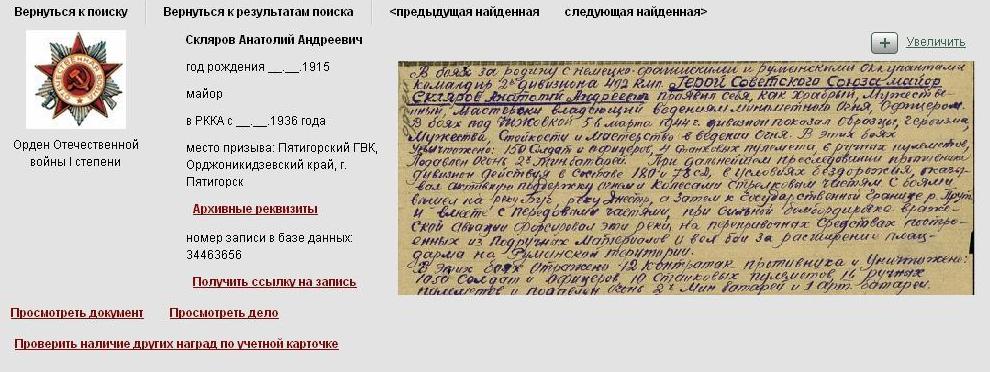 Вернуться к поиску
Вернуться к результатам поиска
<предыдущая найденная
следующая найденная>
ОТЕЧЕСТВЕННАЯ ВОЙНА
Орден Отечественной
войны I степени
Скляров Анатолий Андреевич
год рождения __.__.1915
майор
в РККА с __.__.1936 года
место призыва: Пятигорский ГВК,
Орджоникидзевский край, г.
Пятигорск
Архивные реквизиты
номер записи в базе данных:
34463656
Получить ссылку на запись
Просмотреть документ
Просмотреть дело
Проверить наличие других наград по учетной карточке
Увеличить
В боях за родину с немецко-фашискими и румынскими оккупантами
командир 2го дивизиона 492 Герой Советского Союза майор
Скляров Анатолий Андреевич проявил себя, как храбрый, мужестве-
нный, мастерски владеющий ведением минометного огня, офицером.
В боях под 5-6 марта 1944 г. дивизион показал образцы, героизма,
мужества, стойкости и мастерство в ведении огня. В этих боях
уничтожено: 150 солдат и офицеров, 4 станковых пулемета, ручных пулеметов,
подавлен огонь 2х мин батарей. При дальнейшем преследовании противника
дивизион действуя в составе 180 и 78 СД, в условиях бездорожия, оказы-
вал активную поддержку огнем и колесами стрелковым частям с боями
вышел на реку Буг, реку Днестр, а затем к государственной границе р. Прут
и вместе с передовыми частями, при сильной бомбардировке вражес-
ской авиации форсировал эти реки, на переправочных средствах постро-
енных из подручных материалов и вел бои за расширение плац-
дарма на Румынской територии.
В этих боях отражено 12 контратак противника и уничтожено:
1050 солдат и офицеров 10 станковых пулеметов, 16 ручных
пулеметов и подавлен огонь 2х мин батарей и 1 арт. батареи.